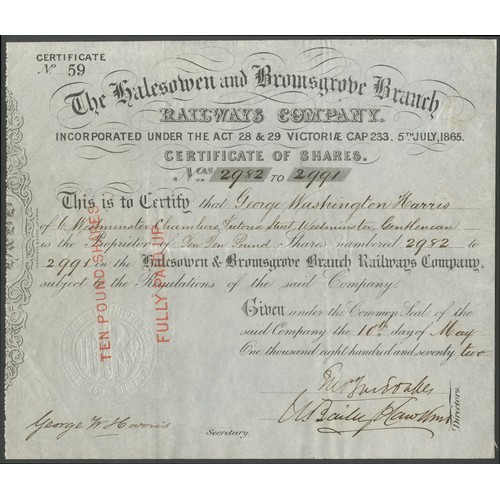 CERTIFICATE
No. 59
The Halesowen and Bromsgrove Branch
RAILWAYS COMPANY.
INCORPORATED UNDER THE ACT 28 & 29 VICTORIÆ CAP 233. 5TH JULY, 1865.
CERTIFICATE OF SHARES.
Nos. 2982 TO 2991
This is to Certify that George Washington Harris
of 6 Westminster Chambers, Victoria Street Westminster, Gentleman
is the Proprietor of Ten Ten Pound Shares numbered 2982 to
2991 in the Halesowen & Bromsgrove Branch Railways Company,
subject to the Regulations of the said Company.
TEN POUND SHARES
FULLY PAID UP
Given under the Common Seal of the
said Company the 10th day of May
One thousand eight hundred and seventy two
Directors.
George W Harris
Secretary.